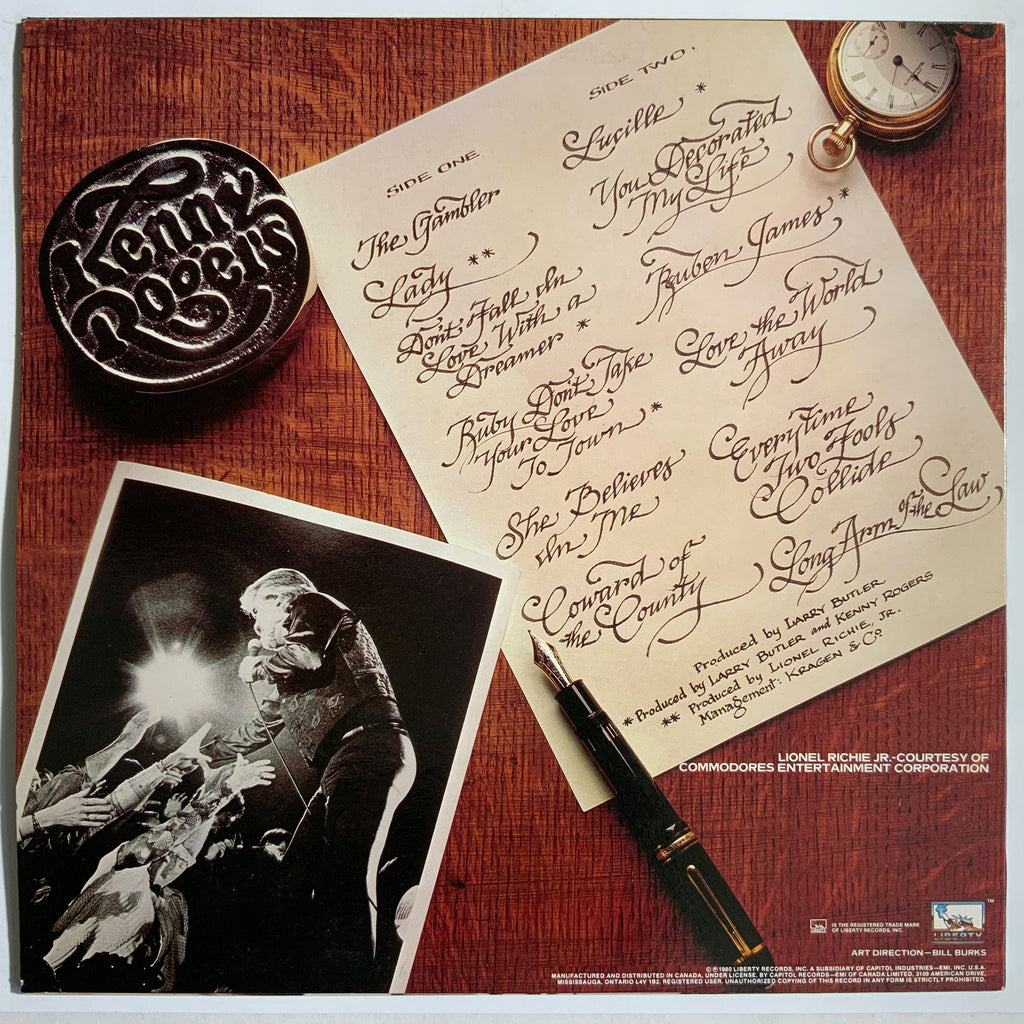 Kenny
Rogers
SIDE ONE
The Gambler
Lady **
Don't Fall In
Love With a
Dreamer *
Ruby Don't Take
Your Love
To Town *
She Believes
In Me
Coward of
the County
SIDE TWO
Lucille *
You Decorated
My Life
Ruben James *
Love the World
Away
Everytime
Two Fools
Collide
Long Arm of the Law
Produced by LARRY BUTLER
* Produced by LARRY BUTLER and KENNY ROGERS
** Produced by LIONEL RICHIE, JR.
Management: KRAGEN & Co
LIONEL RICHIE JR.-COURTESY OF
COMMODORES ENTERTAINMENT CORPORATION
LIBERTY IS THE REGISTERED TRADE MARK
OF LIBERTY RECORDS, INC.
LIBERTY
TM
ART DIRECTION–BILL BURKS
© ℗ 1980 LIBERTY RECORDS, INC. A SUBSIDIARY OF CAPITOL INDUSTRIES—EMI, INC. U.S.A.
MANUFACTURED AND DISTRIBUTED IN CANADA, UNDER LICENSE, BY CAPITOL RECORDS—EMI OF CANADA LIMITED, 3109 AMERICAN DRIVE,
MISSISSAUGA, ONTARIO L4V 1B2. REGISTERED USER. UNAUTHORIZED COPYING OF THIS RECORD IN ANY FORM IS STRICTLY PROHIBITED.